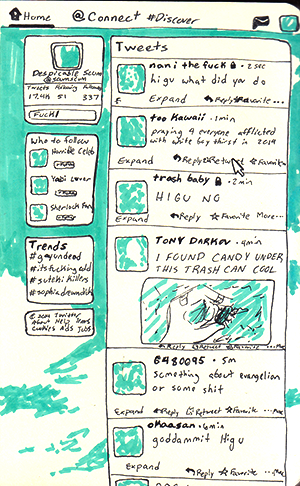 Home @Connect #Discover
Despicable Scum
@scumscum
Tweets Following Followers
17.4K 51 337
Fuck!
Who to follow
Horrible Celeb
Yaoi Lover
Sherlock Fan
Trends
#gayundead
#itsfuckingadd
#sutchi killer
© 2014 Twitter
About Help
Cookies Ads Jobs
Tweets
nani the fuck • 2sec
higu what did you do
Expand Reply Favorite ...
too Kawaii • 1min
praying 4 everyone afflicted
with white boy thirst in 2014
Expand Reply Retweet Favorite
trash baby • 2min
HIGU NO
Expand Reply Favorite More...
TONY DARKOV • 4min
I FOUND CANDY UNDER
THIS TRASH CAN COOL
Reply Retweet Favorite
8480095 • 5m
something about evangelion
or some shit
Expand Reply Retweet Favorite
oMaagan • 6min
goddammit Higu
Expand Reply Favorite ...More